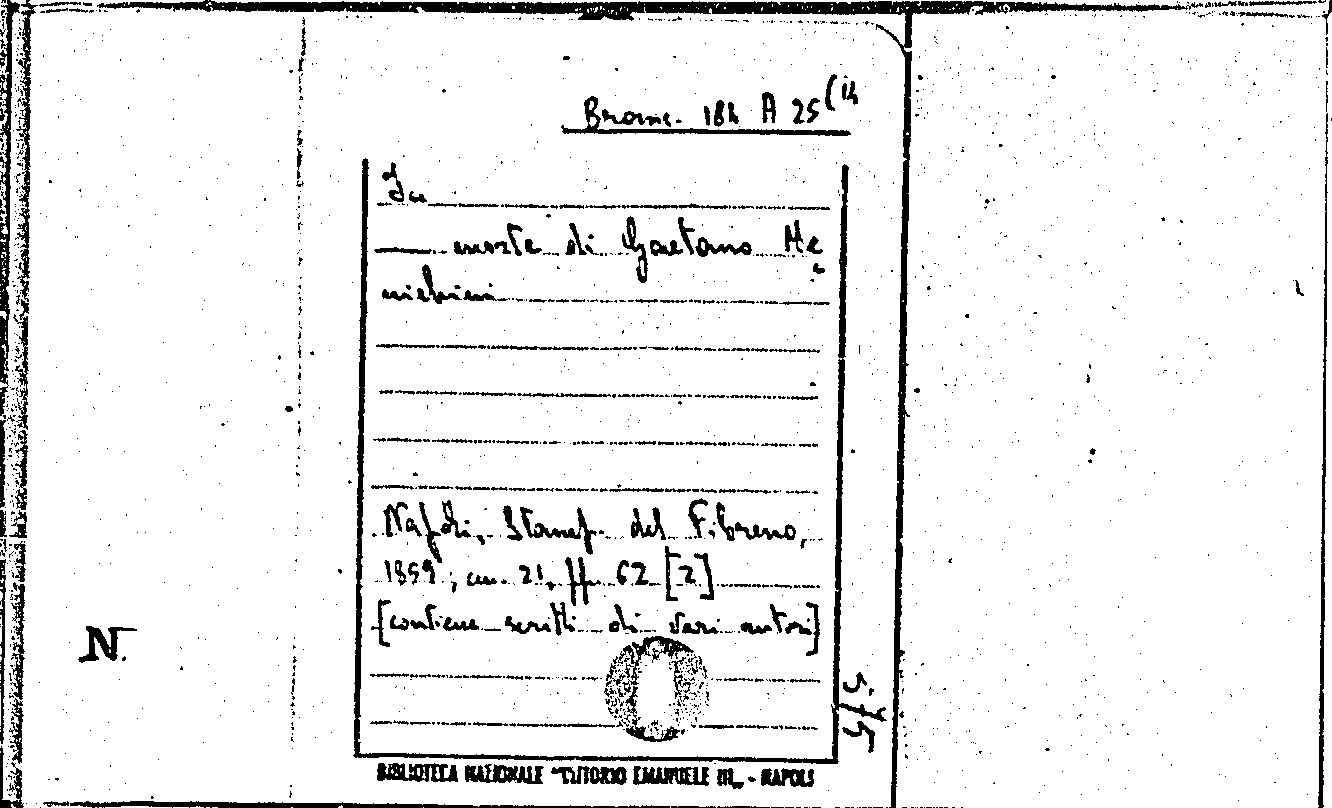 Branc. 184 A 25 (14
In
morte di Gaetano Me
nichini
Napoli, Stamp. del Fibreno,
1859; cm. 21, pp. 62 [2]
[contiene scritti di vari autori]
N.
BIBLIOTECA NAZIONALE "VITTORIO EMANUELE III" - NAPOLI